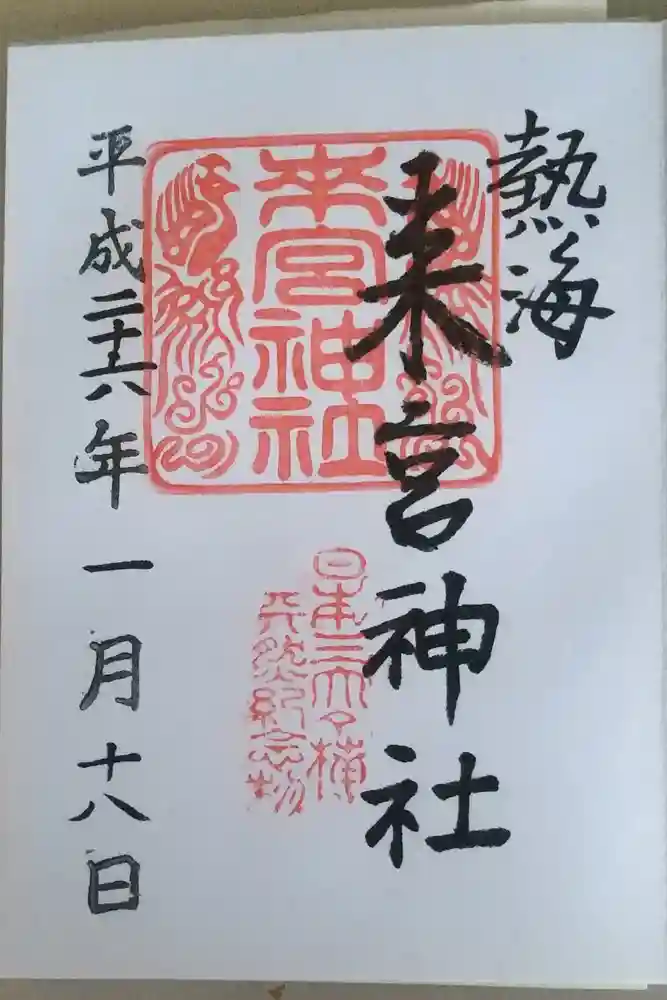 熱海
来宮神社
来宮神社
日本三大楠
天然紀念物
平成二十六年一月十八日